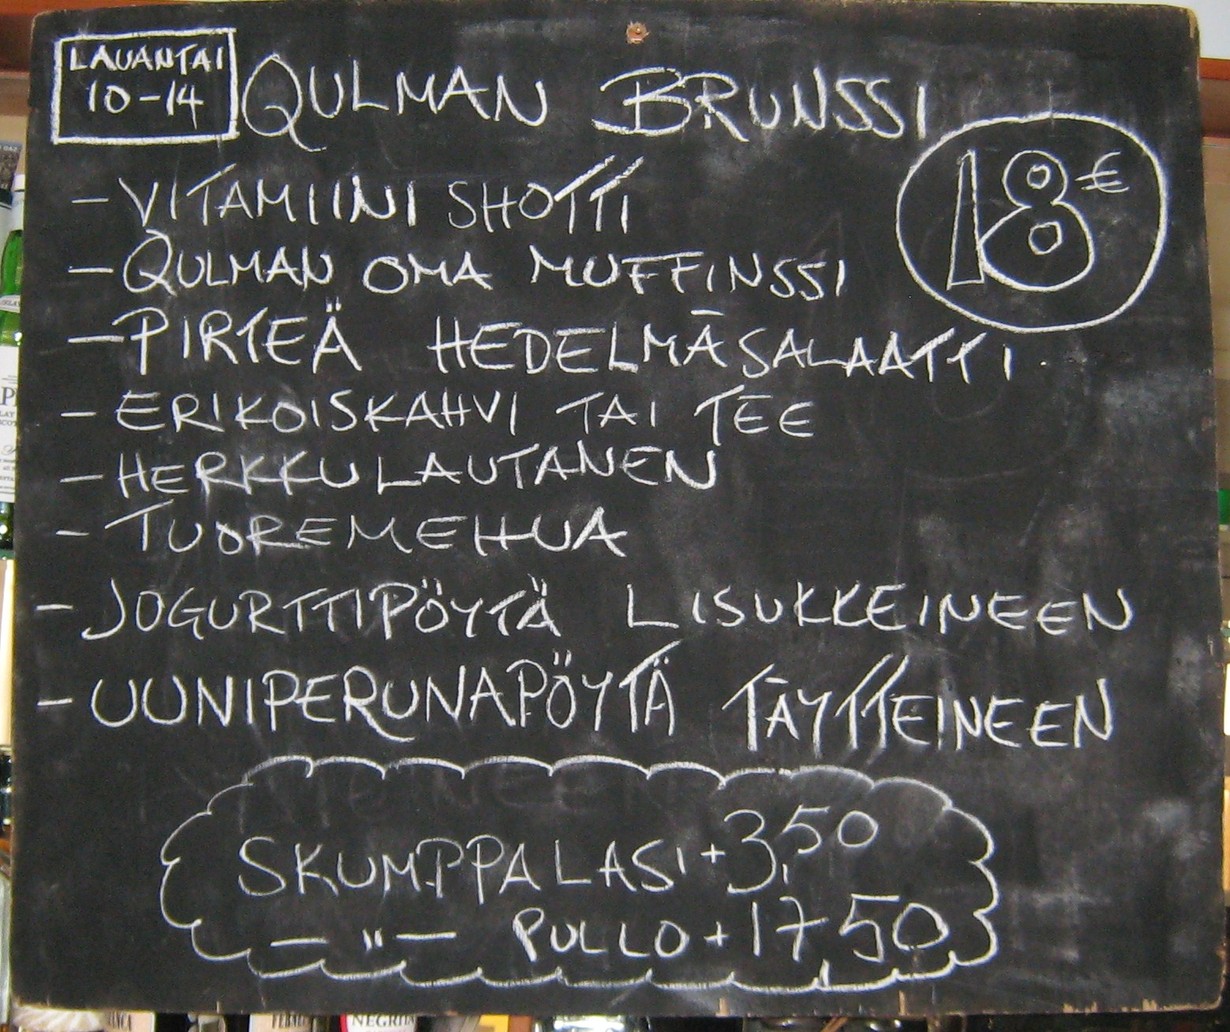 LAUANTAI
10-14
QULMAN BRUNSSI
18€
- VITAMIINI SHOTTI
- QULMAN OMA MUFFINSSI
- PIRTEÄ HEDELMÄSALAATTI
- ERIKOISKAHVI TAI TEE
- HERKKULAUTANEN
- TUOREMEHUA
- JOGURTTIPÖYTÄ LISUKKEINEEN
- UUNIPERUNAPÖYTÄ TÄYTTEINEEN
SKUMPPALASI + 3,50
— " — PULLO + 17 50
NEGRITA